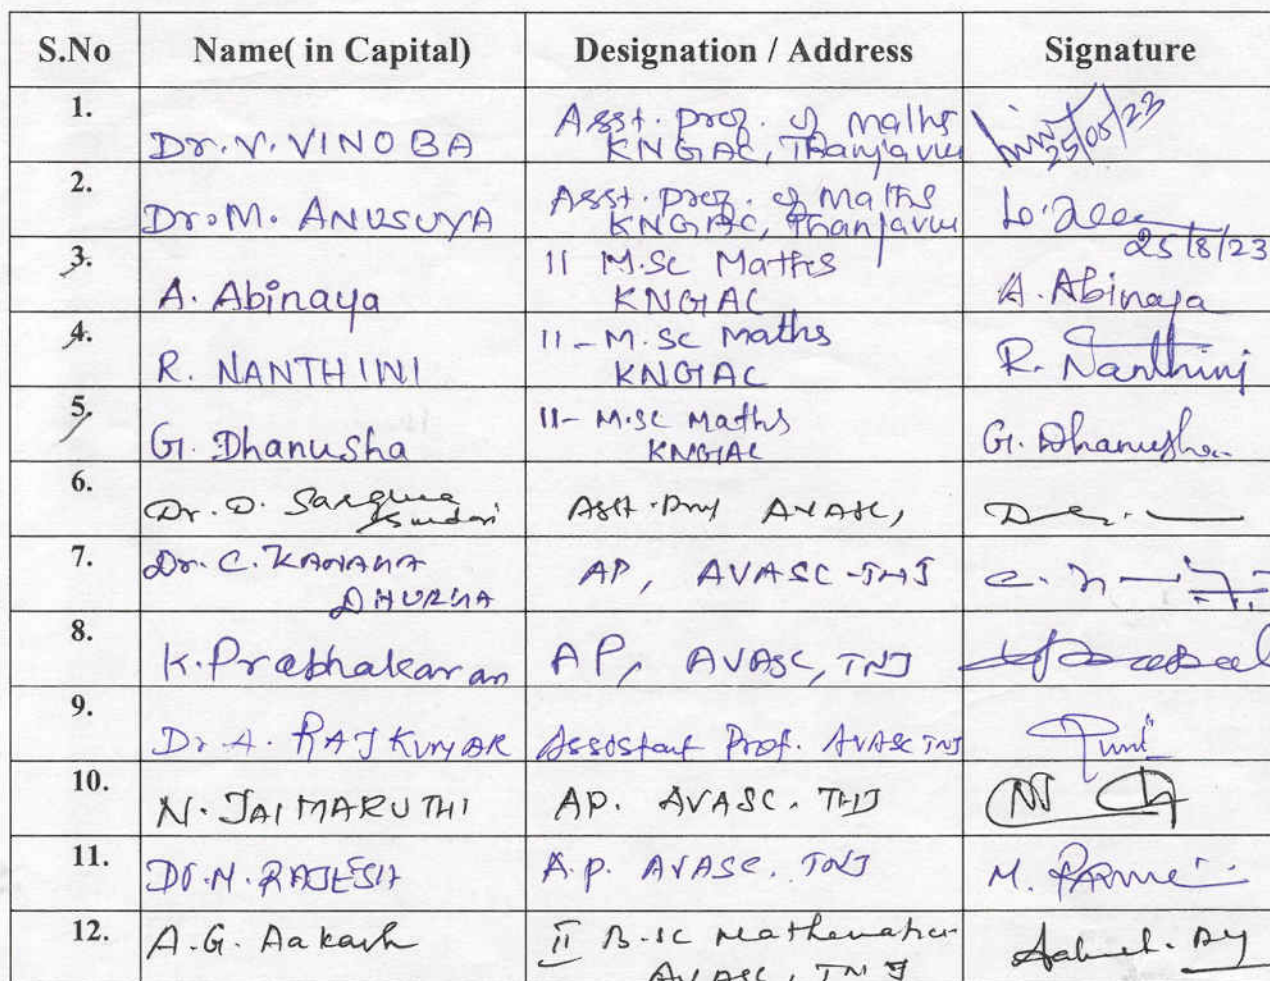 S.No Name( in Capital) Designation / Address Signature
1. Dr. V. VINOBA Asst. prof. of Maths
KNGAC, Thanjavur 25/08/23
2. Dr. M. ANUSUYA Asst. prof. of Maths
KNGAC, Thanjavur 25/8/23
3. A. Abinaya II M.Sc Maths
KNGAC A. Abinaya
4. R. NANTHINI II - M.Sc Maths
KNGAC R. Nanthini
5. G. Dhanusha II- M.Sc Maths
KNGAC G. Dhanusha
6. Dr. D. Asst. Prof AVASC,
7. Dr. C. KANAKA
DHURGA AP, AVASC-TNJ
8. K. Prabhakaran AP, AVASC, TNJ
9. Dr A. RAJKUMAR Assistant Prof. AVASC TNJ
10. N. JAIMARUTHI AP. AVASC. TNJ
11. Dr. M. RAJESH A.P. AVASC. TNJ M.
12. A.G. Aakash II B.Sc Mathematics
AVASC, TNJ